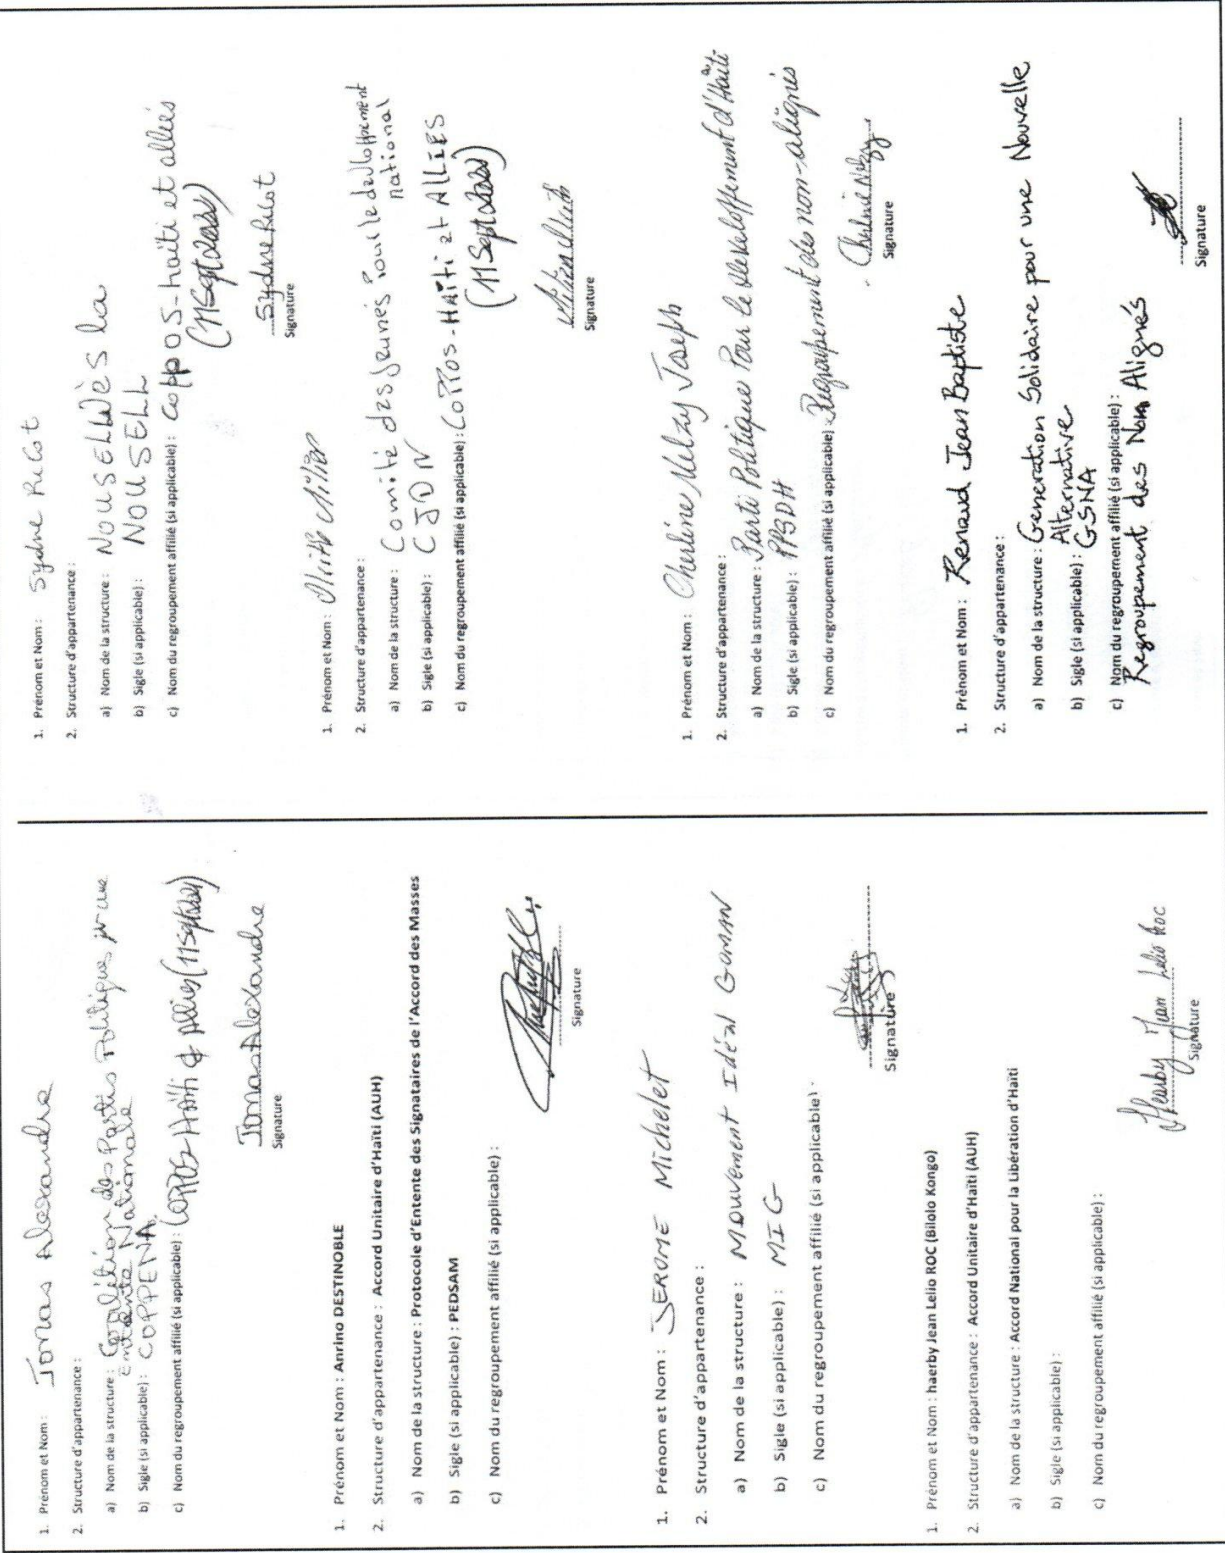 1. Prénom et Nom : Jonas Alexandre
2. Structure d'appartenance :
a) Nom de la structure : Coalition des Partis Politiques pour une
Entente Nationale
b) Sigle (si applicable) : COPPENA
c) Nom du regroupement affilié (si applicable) : COPPOS-Haïti & Alliés (11 Sept
Jonas Alexandre
Signature
1. Prénom et Nom : Anrino DESTINOBLE
2. Structure d'appartenance : Accord Unitaire d'Haïti (AUH)
a) Nom de la structure : Protocole d'Entente des Signataires de l'Accord des Masses
b) Sigle (si applicable) : PEDSAM
c) Nom du regroupement affilié (si applicable) :
Signature
1. Prénom et Nom : JEROME Michelet
2. Structure d'appartenance :
a) Nom de la structure : Mouvement Idéal Goman
b) Sigle (si applicable) : MIG
c) Nom du regroupement affilié (si applicable) :
Signature
1. Prénom et Nom : haerby Jean Lelio ROC (Bilolo Kongo)
2. Structure d'appartenance : Accord Unitaire d'Haïti (AUH)
a) Nom de la structure : Accord National pour la Libération d'Haïti
b) Sigle (si applicable) :
c) Nom du regroupement affilié (si applicable) :
Hearby Jean Lelio Roc
Signature
1. Prénom et Nom : Sydne Ricot
2. Structure d'appartenance :
a) Nom de la structure : NOUSELLWÈS la
b) Sigle (si applicable) : NOUSELL
c) Nom du regroupement affilié (si applicable) : Coppos-haïti et alliés
(11 Sept
Sydne Ricot
Signature
1. Prénom et Nom :
2. Structure d'appartenance :
a) Nom de la structure : Comité des jeunes pour le développement
national
b) Sigle (si applicable) : CJDN
c) Nom du regroupement affilié (si applicable) : COPPOS-HAïTi et ALLIES
(11 Sept
Signature
1. Prénom et Nom : Cherline Joseph
2. Structure d'appartenance :
a) Nom de la structure : Parti Politique Pour le développement d'Haïti
b) Sigle (si applicable) :
c) Nom du regroupement affilié (si applicable) : Regroupement des non-alignés
Signature
1. Prénom et Nom : Renaud Jean Baptiste
2. Structure d'appartenance :
a) Nom de la structure : Génération Solidaire pour une Nouvelle
Alternative
b) Sigle (si applicable) : GSNA
c) Nom du regroupement affilié (si applicable) :
Regroupement des Non Alignés
Signature